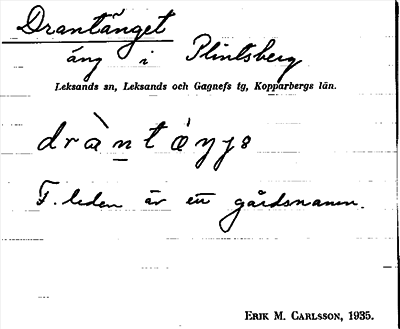 Drantänget
äng i Plintsberg
Leksands sn, Leksands och Gagnefs tg, Kopparbergs län.
F. leden är ett gårdsnamn.
ERIK M. CARLSSON, 1935.